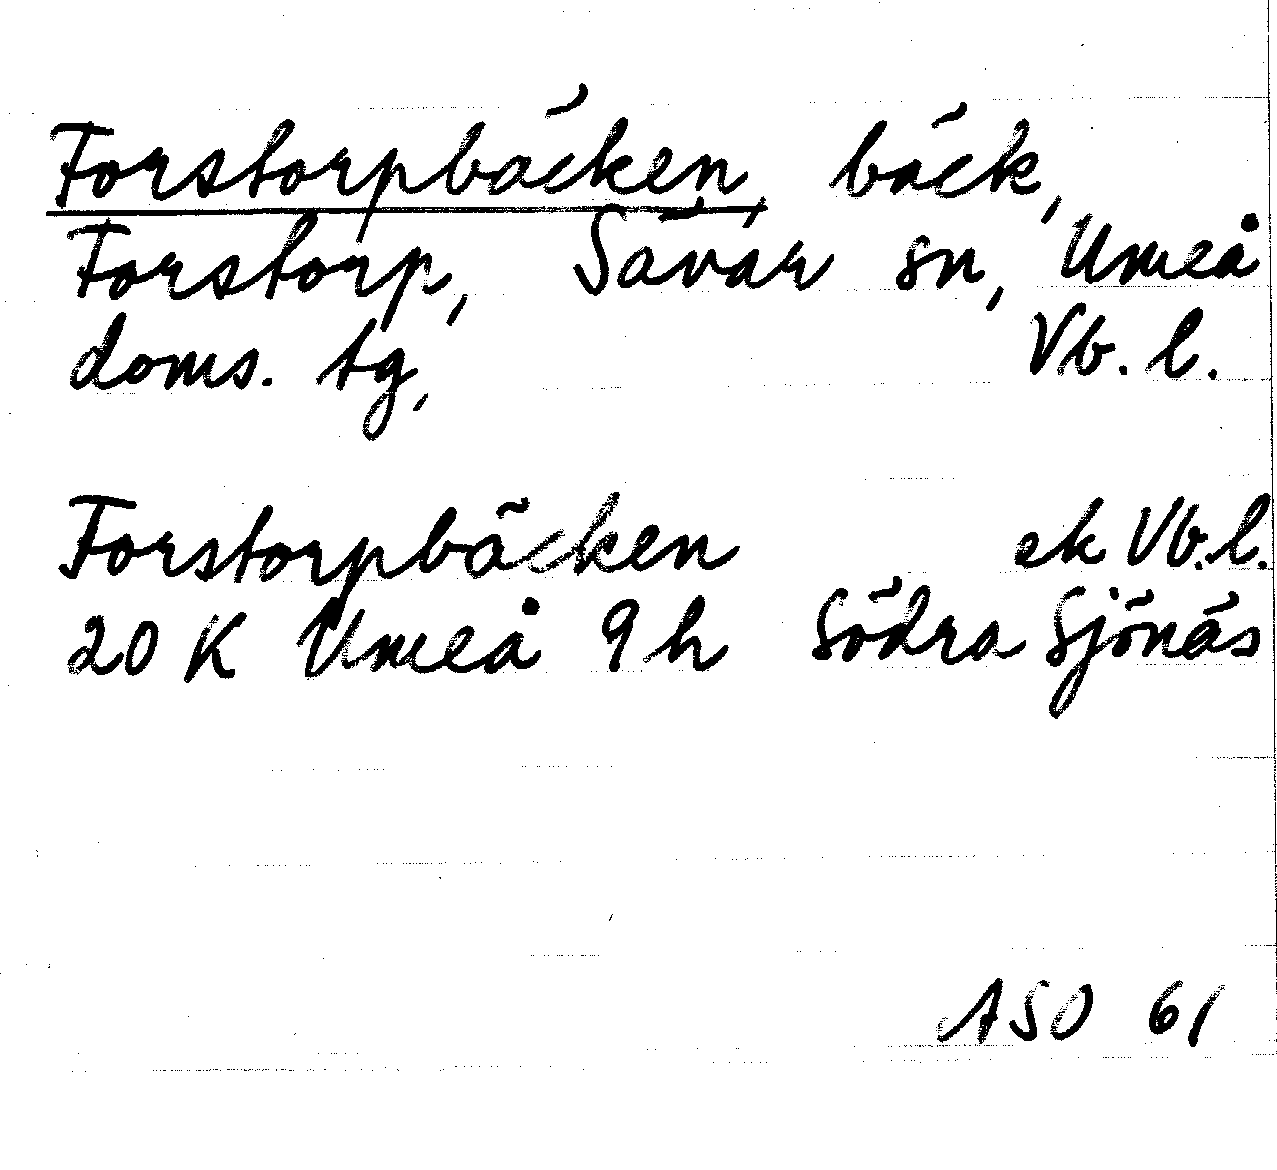 Forstorpbäcken, bäck,
Forstorp, Sävar sn, Umeå
doms. tg, Vb. l.
Forstorpbäcken ek Vb.l.
20 K Umeå 9h Södra Sjönäs
ASO 61